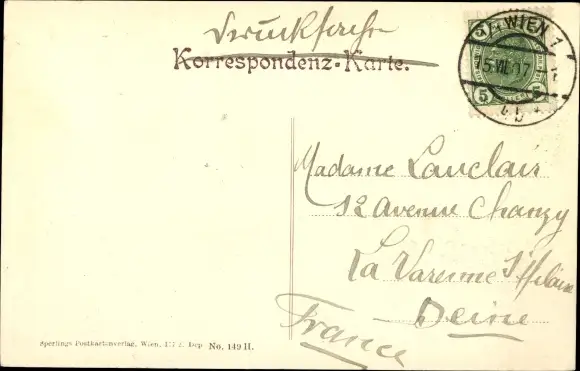 Drucksache
Korrespondenz-Karte.
WIEN 1
5
5
Madame Lauclair
12 avenue Chanzy
La Varenne St Hilaire
Seine
France
Sperlings Postkartenverlag, Wien, Dep No. 149 H.